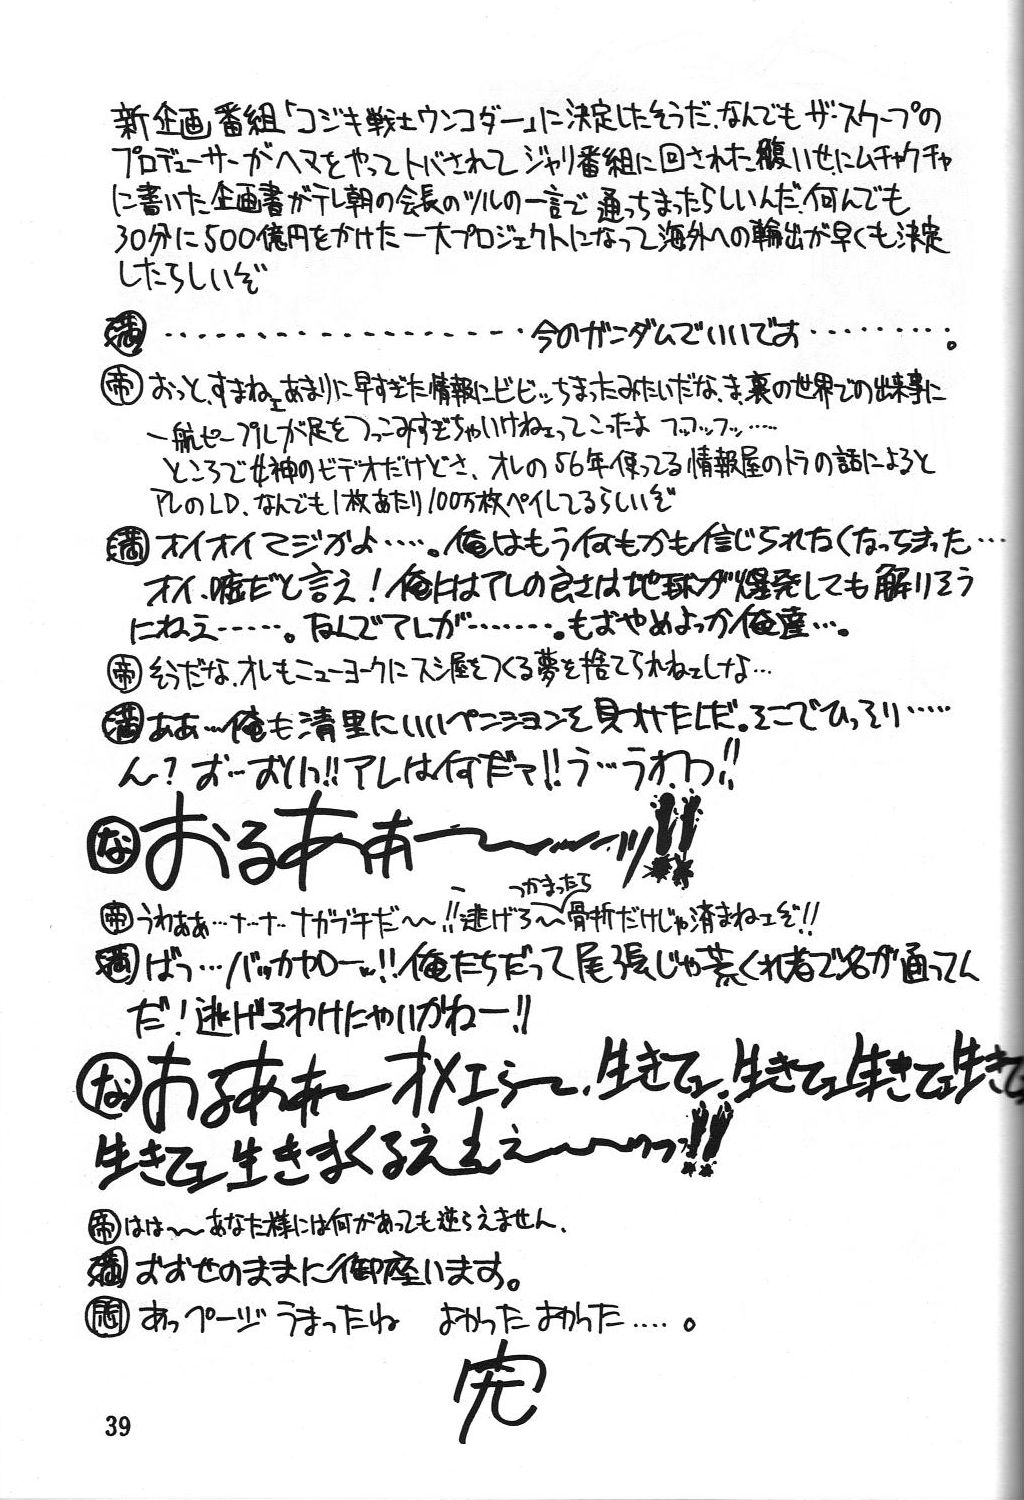 新企画番組「コジキ戦士ウンコダー」に決定したそうだ、なんでもザ・スクープの
プロデューサーがヘマをやってトバされてジャリ番組に回された腹いせにムチャクチャ
に書いた企画書がテレ朝の会長のツルの一言で通っちまったらしいんだ、何んでも
30分に500億円をかけた一大プロジェクトになって海外への輸出が早くも決定
したらしいぞ
満 ・・・・・・・・・・・・・・・・・今のガンダムでいいでお・・・・・・・・。
帝 おっと、すまねェあまりに早すぎた情報にビビッちまったみたいだな、ま、裏の世界での出来事に
一般ピープルが足をつっこみすぎちゃいけねェってこったよ フッフッフッ・・・・・
ところで女神のビデオだけどさ、オレの56年使ってる情報屋のトラの話によると
アレのLD、なんでも1枚あたり100万枚ペイしてるらしいぞ
満 オイオイマジかよ・・・・・。俺はもう何もかも信じられなくなっちまった・・・
オイ、嘘だと言え!俺にはアレの良さは地球が爆発しても解りそう
にねえ・・・・・・。なんでアレが・・・・・・・。もおやめよっか俺達・・・。
帝 そうだな、オレもニューヨークにスシ屋をつくる夢を捨てられねェしなよ・・・
満 ああ・・・俺も清里にいいペンションを見つけたしだ。そこでひっそり・・・・・
ん? おーおいっ!!アレは何だァ!!う・・・うわっ!!
な おるあぁ〜〜〜ッ!!
帝 うわぁぁ・・・ナ・・ナ・・ナガブチだ〜〜!!逃げろ〜つかまったら骨折だけじゃ済まねェぞ!!
満 ばっ・・・バッカヤローッ!!俺たちだって尾張じゃ荒くれ者で名が通ってん
だ!逃げるわけにゃいかねー!!
な おるあぁ〜オメェら〜、生きてェ、生きてェ生きてェ生きて
生きてェ生きまくるえぇぇ〜〜ゥッ!!
帝 はは〜〜あなた様には何があっても逆らえません、
満 おおせのままに御座います。
悶 あっページうまったね よかったよかった・・・・。
完
39